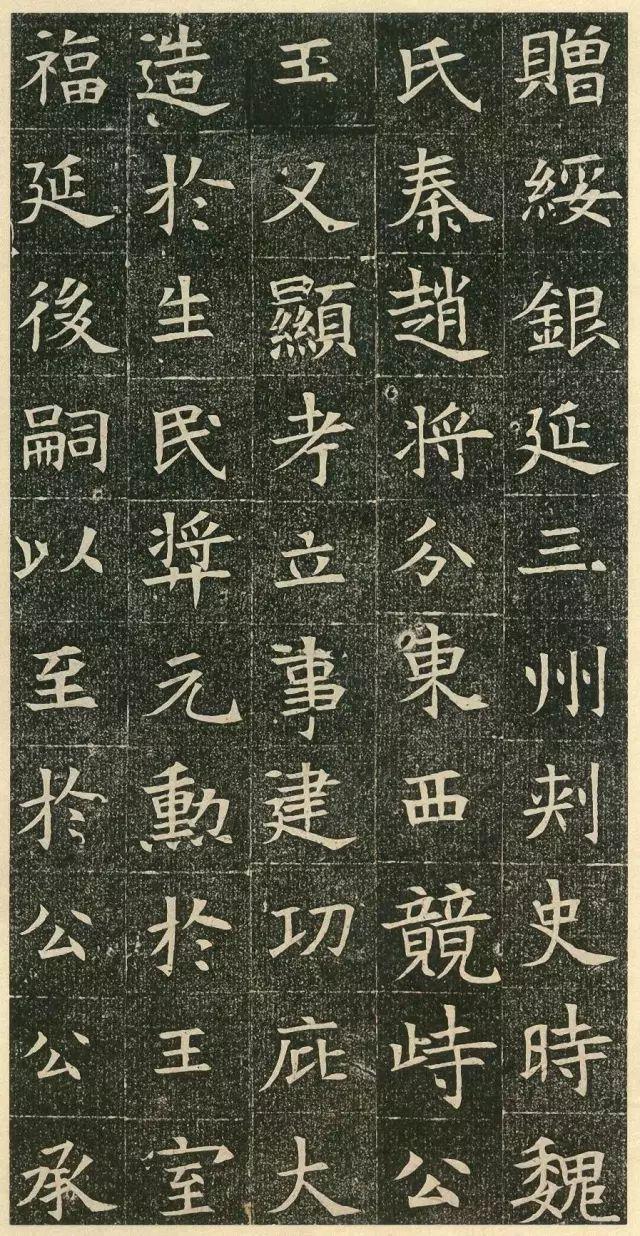 贈綏銀延三州刾史時魏
氏秦趙将分東西競峙公
王又顯考立事建功庇大
造扵生民㢡元勳扵王室
福延後嗣以至扵公公承